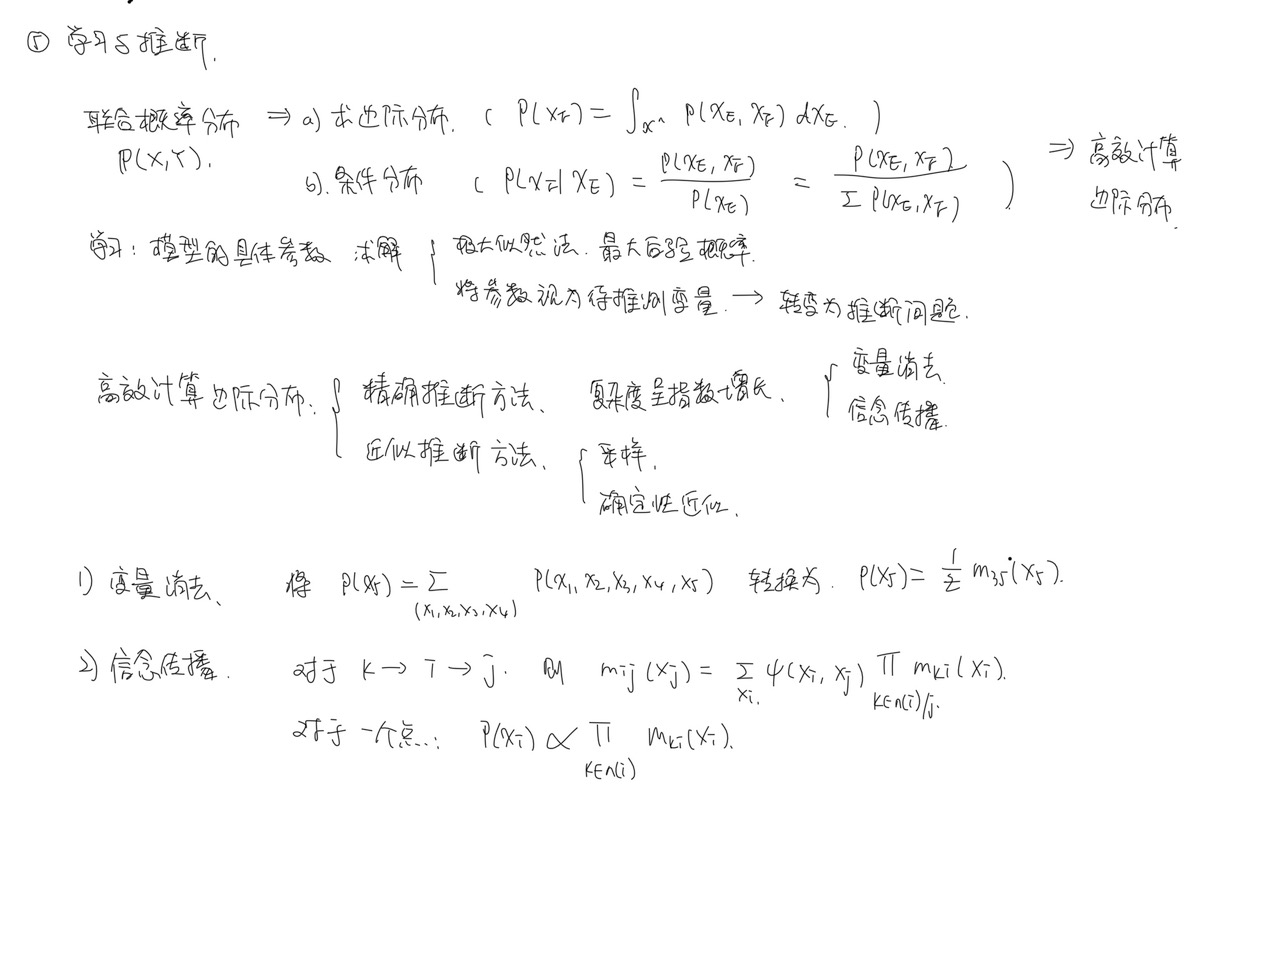 ⑤ 学习与推断.
联合概率分布 ⇒ a) 求边际分布. ( P(x_F) = ∫_{x^n} P(x_E, x_F) dx_E. )
P(X,Y).
b). 条件分布 ( P(x_F | x_E) = P(x_E, x_F) / P(x_E) = P(x_E, x_F) / Σ P(x_E, x_F) ) ⇒ 高效计算
边际分布.
学习: 模型的具体参数 求解 { 极大似然法. 最大后验概率.
将参数视为待推测变量. → 转变为推断问题.
高效计算边际分布: { 精确推断方法、 复杂度呈指数增长. { 变量消去
信念传播.
近似推断方法、 { 采样.
确定性近似.
1) 变量消去、 将 P(x5) = Σ_{(x1,x2,x3,x4)} P(x1,x2,x3,x4,x5) 转换为. P(x5) = 1/z m35(x5).
2) 信念传播. 对于 k → i → j. 则 m_ij(x_j) = Σ_{x_i.} ψ(x_i, x_j) Π_{k∈n(i)/j.} m_ki(x_i).
对于一个点..: P(x_i) ∝ Π_{k∈n(i)} m_ki(x_i).